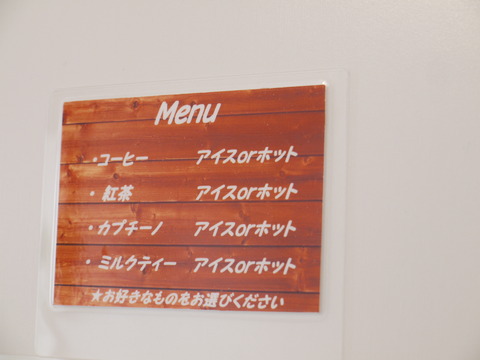 Menu
・コーヒー アイスorホット
・紅茶 アイスorホット
・カプチーノ アイスorホット
・ミルクティー アイスorホット
★お好きなものをお選びください